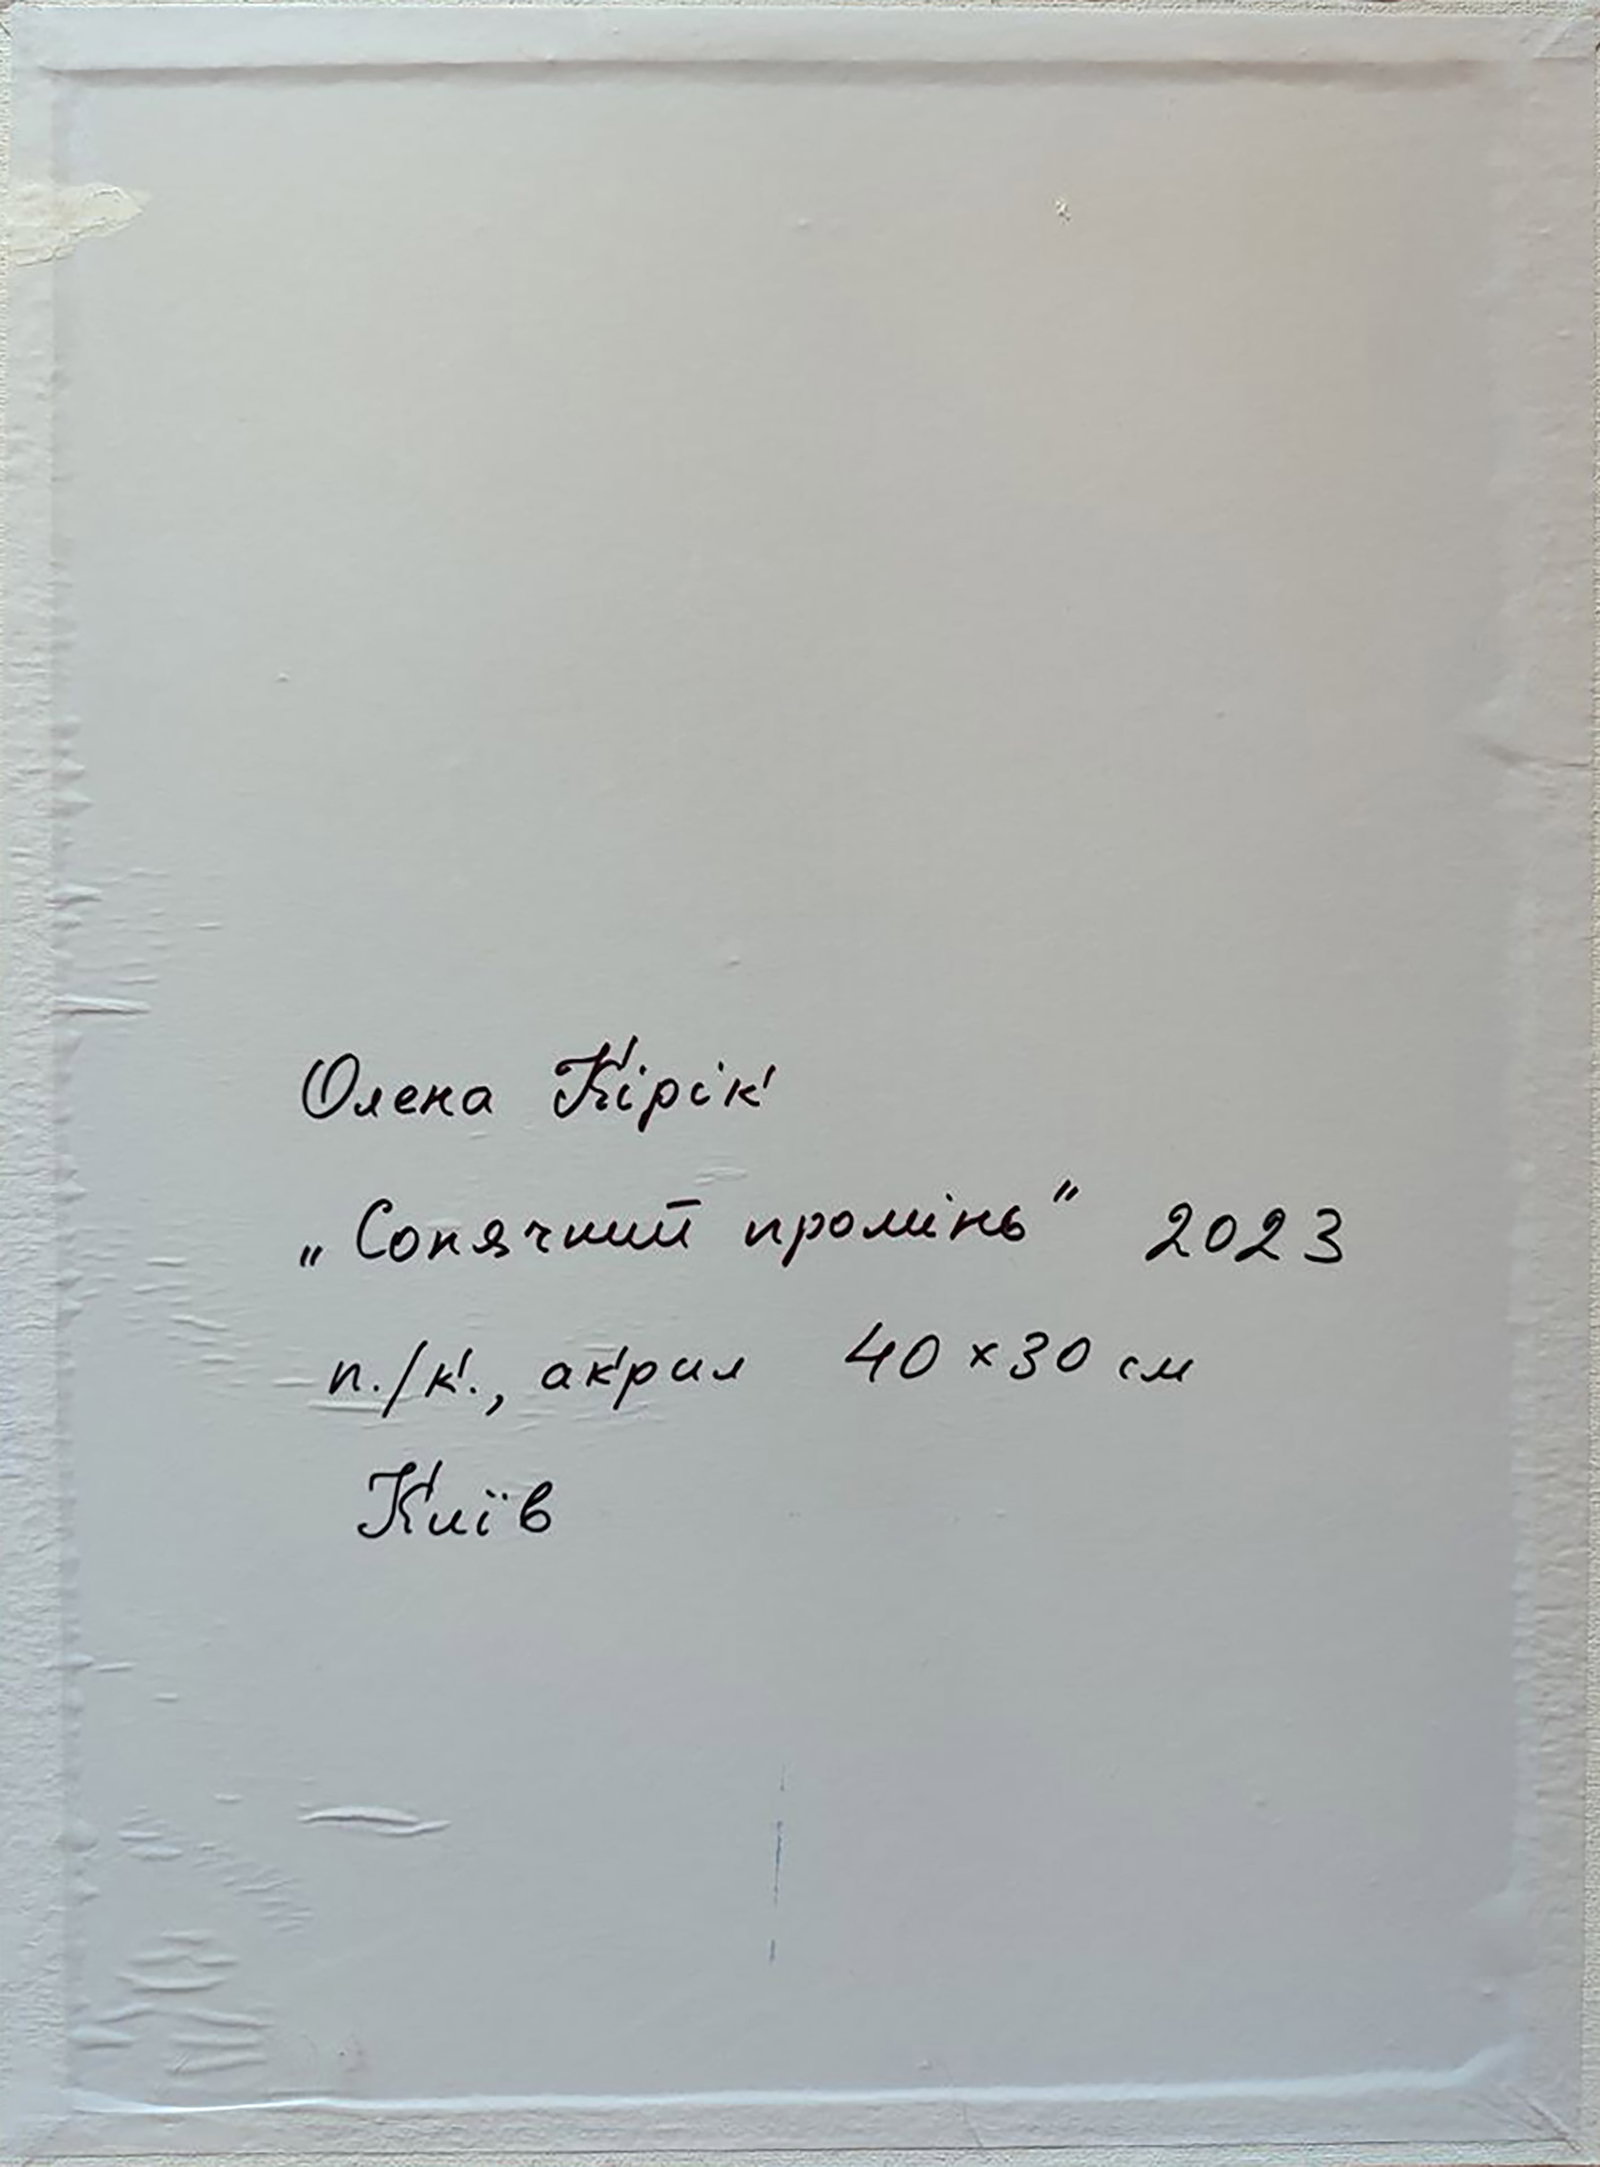 Олена Кірік
„Сонячний промінь" 2023
п./к., акрил 40 × 30 см
Київ